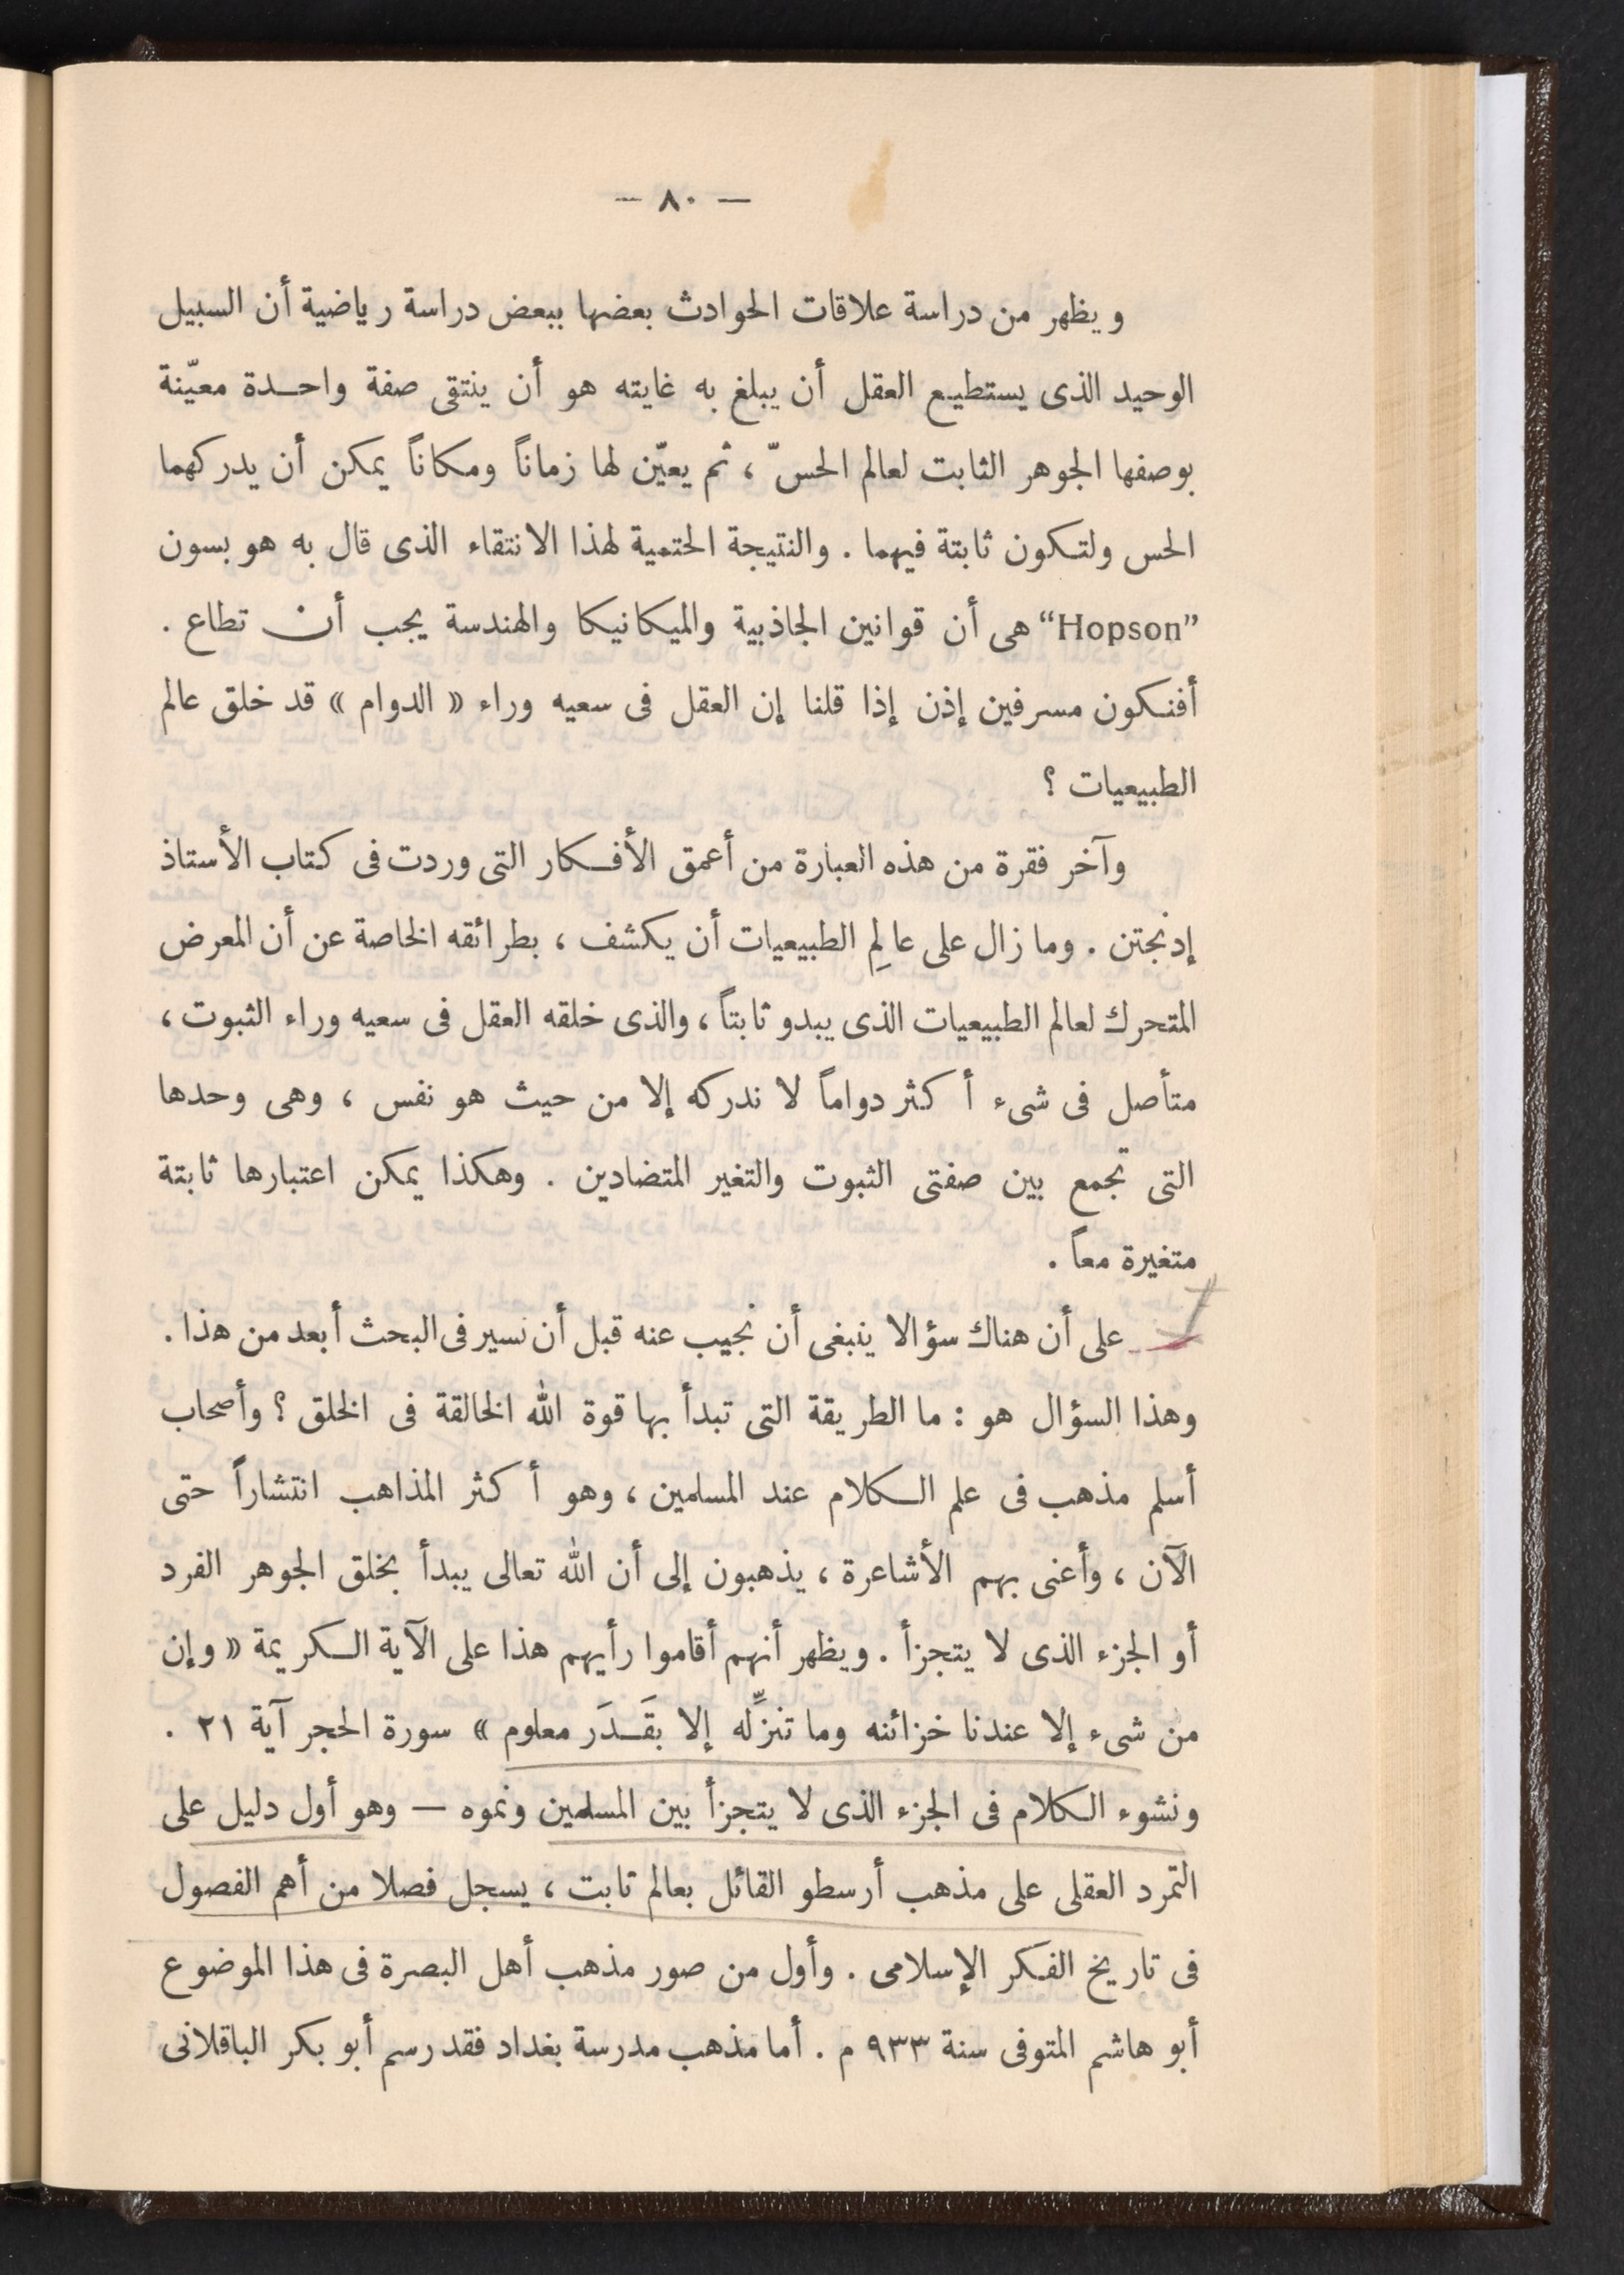 — ٨٠ —
ويظهر من دراسة علاقات الحوادث بعضها ببعض دراسة رياضية أن السبيل
الوحيد الذى يستطيع العقل أن يبلغ به غايته هو أن ينتقى صفة واحدة معيّنة
بوصفها الجوهر الثابت لعالم الحسّ ، ثم يعيّن لها زماناً ومكاناً يمكن أن يدركهما
الحس ولتكون ثابتة فيهما . والنتيجة الحتمية لهذا الانتقاء الذى قال به هو بسون
“Hopson” هى أن قوانين الجاذبية والميكانيكا والهندسة يجب أن تطاع .
أفنكون مسرفين إذن إذا قلنا إن العقل فى سعيه وراء « الدوام » قد خلق عالم
الطبيعيات ؟
وآخر فقرة من هذه العبارة من أعمق الأفكار التى وردت فى كتاب الأستاذ
إدنجتن . وما زال على عالِم الطبيعيات أن يكشف ، بطرائقه الخاصة عن أن المعرض
المتحرك لعالم الطبيعيات الذى يبدو ثابتاً ، والذى خلقه العقل فى سعيه وراء الثبوت ،
متأصل فى شىء أكثر دواماً لا ندركه إلا من حيث هو نفس ، وهى وحدها
التى تجمع بين صفتى الثبوت والتغير المتضادين . وهكذا يمكن اعتبارها ثابتة
متغيرة معاً .
على أن هناك سؤالا ينبغى أن نجيب عنه قبل أن نسير فى البحث أبعد من هذا .
وهذا السؤال هو : ما الطريقة التى تبدأ بها قوة الله الخالقة فى الخلق ؟ وأصحاب
أسلم مذهب فى علم الكلام عند المسلمين ، وهو أكثر المذاهب انتشاراً حتى
الآن ، وأعنى بهم الأشاعرة ، يذهبون إلى أن الله تعالى يبدأ بخلق الجوهر الفرد
أو الجزء الذى لا يتجزأ . ويظهر أنهم أقاموا رأيهم هذا على الآية الكريمة « وإن
من شىء إلا عندنا خزائنه وما تنزِّله إلا بقَدَر معلوم » سورة الحجر آية ٢١ .
ونشوء الكلام فى الجزء الذى لا يتجزأ بين المسلمين ونموه — وهو أول دليل على
التمرد العقلى على مذهب أرسطو القائل بعالم ثابت ، يسجل فصلا من أهم الفصول
فى تاريخ الفكر الإسلامى . وأول من صور مذهب أهل البصرة فى هذا الموضوع
أبو هاشم المتوفى سنة ٩٣٣ م . أما مذهب مدرسة بغداد فقد رسم أبو بكر الباقلانى